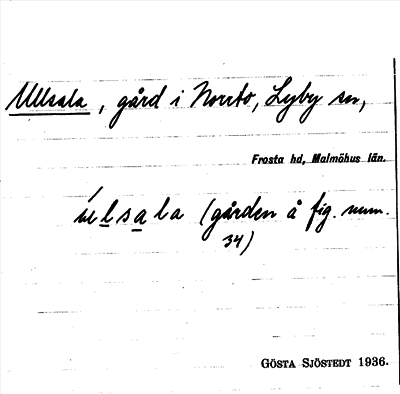 Ullsala, gård i Norrto, Lyby sn,
Frosta hd, Malmöhus län.
úlsala (gården å fig. num.
34)
GÖSTA SJÖSTEDT 1936.